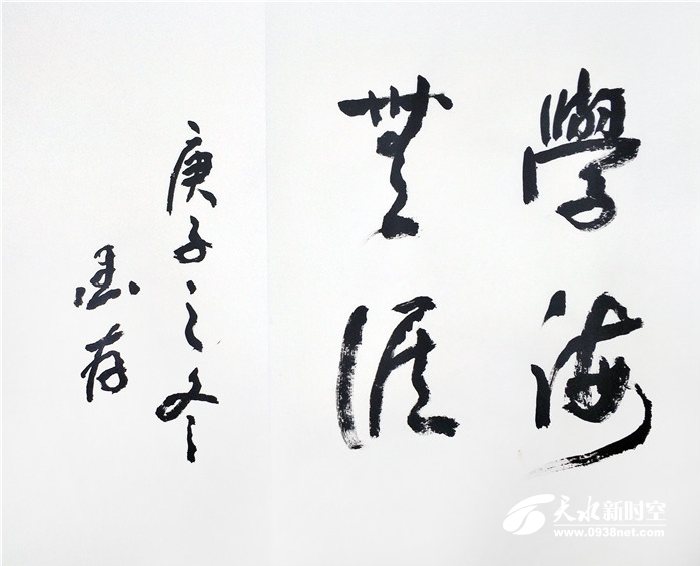 學海
無涯
庚子之冬
存
天水新时空
www.0938net.com